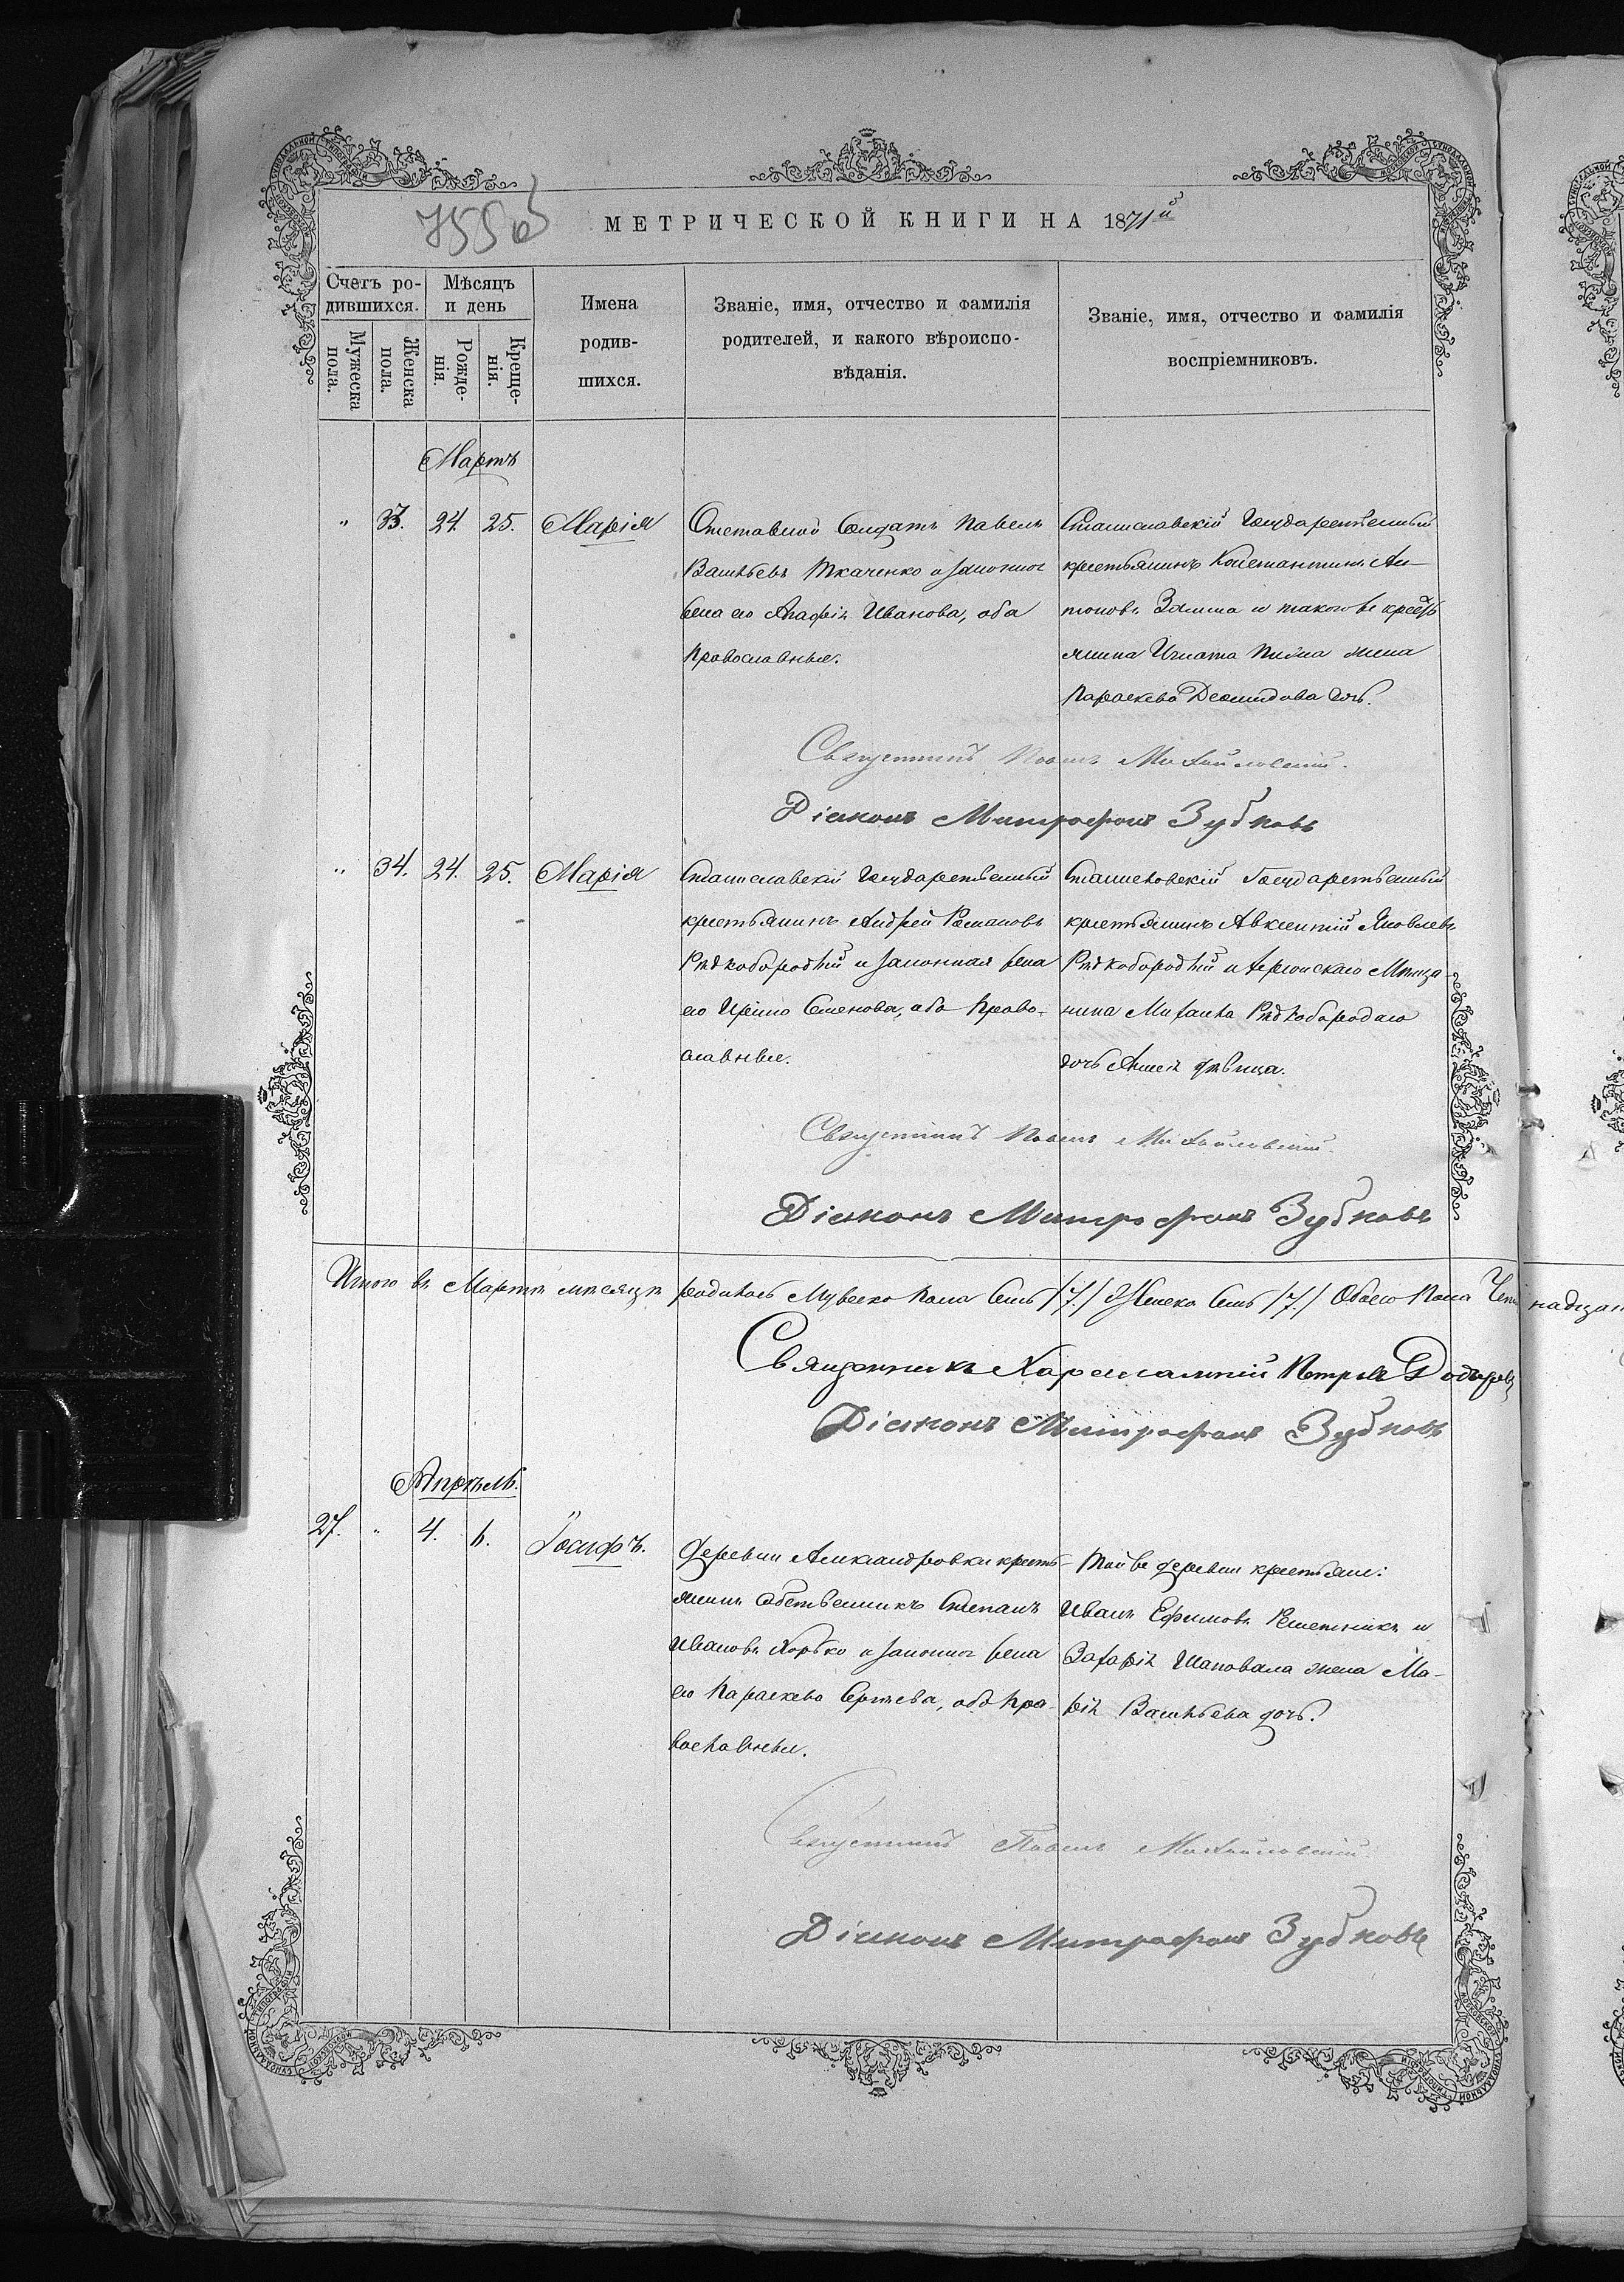 755 об
МЕТРИЧЕСКОЙ КНИГИ НА 1871й
Счетъ ро-
дившихся.
Мѣсяцъ
и день
Имена
родив-
шихся.
Званіе, имя, отчество и фамилія
родителей, и какого вѣроиспо-
вѣданія.
Званіе, имя, отчество и фамилія
воспріемниковъ.
Мужеска
пола.
Женска
пола.
Рожде-
нія.
Креще-
нія.
Мартъ
" 33. 24. 25. Марія
Отставной Солдатъ Павелъ
Васильевъ Ткаченко и законная
жена его Агафія Иванова, оба
православные.
Станиславскій Государственный
крестьянинъ Константинъ Ан-
тоновъ и такого же кресть
янина Игната жена
Параскева Деомидова дочь.
Священникъ Павелъ Михайловскій.
Діаконъ Митрофанъ Зубковъ
" 34. 24. 25. Марія
Станиславскій Государственный
крестьянинъ Андрей Романовъ
Рѣдкобородый и законная жена
его Ирина Семенова, оба право-
славные.
Станиславскій Государственный
крестьянинъ Авксентій Яковлевъ
Рѣдкобородый и Херсонскаго Мѣща-
нина Михаила Рѣдкобородаго
дочь дѣвица.
Священникъ Павелъ Михайловскій.
Діаконъ Митрофанъ Зубковъ
Итого въ Мартѣ мѣсяцѣ родилось Мужеска пола Семь /7./ Женска Семь /7./ Обоего пола Чет
надцат
Священникъ Харлампій Петровъ
Діаконъ Митрофанъ Зубковъ
Апрѣль.
27. " 4. 6. Іосифъ.
Деревни Александровки кресть-
янинъ собственникъ Степанъ
Ивановъ Хорько и законная жена
его Параскева Сергѣева, оба пра-
вославные.
Той же деревни крестьяне:
Иванъ Ефимовъ Решетникъ и
Захарія Шаповала жена Ма-
рія Васильева дочь.
Священникъ Павелъ Михайловскій.
Діаконъ Митрофанъ Зубковъ